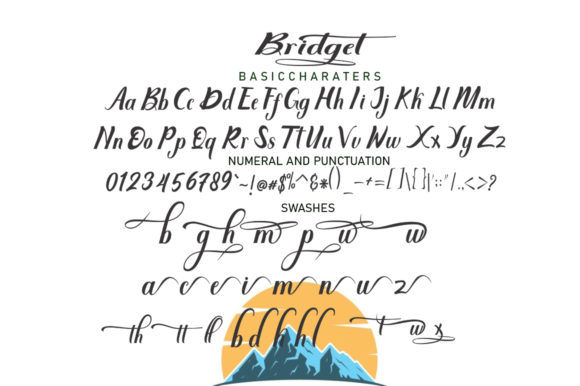 Bridget
BASICCHARATERS
Aa Bb Cc Dd Ee Ff Gg Hh Ii Jj Kk Ll Mm
Nn Oo Pp Qq Rr Ss Tt Uu Vv Ww Xx Yy Zz
NUMERAL AND PUNCTUATION
0123456789`~!@#$%^&*()_-+=[]\{}|':;"/.,<>?
SWASHES
b g h m p w w
a c e i m n u z
th tt ll b d k h l t w x